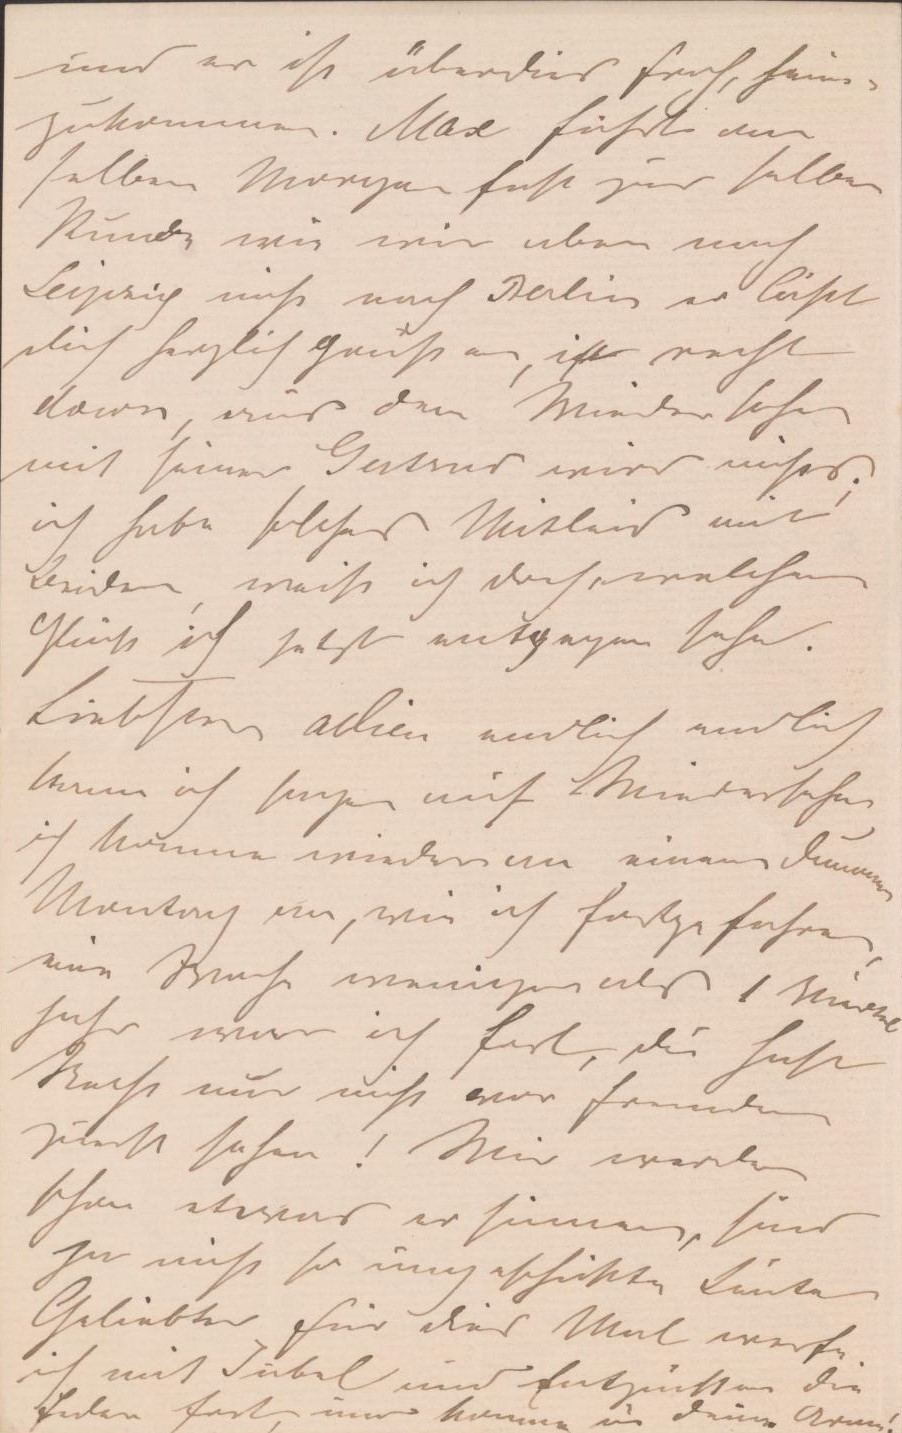 und er ist überdies froh, heim-
zukommen. Max fährt am
selben Morgen fast zur selben
Stunde wie wir aber nach
Leipzig nicht nach Berlin er läßt
dich herzlich grüßen, ist recht
down, aus dem Wiedersehen
mit seiner Gertrud wird nichts;
ich habe solches Mitleid mit
Beiden, weiß ich doch, welchem
Glück ich jetzt entgegen sehe.
Liebster adieu endlich endlich
kann ich sagen auf Wiedersehen
ich komme wieder an einem dummen
Montag an, wie ich fortgefahren,
eine Woche weniger als 1 Viertel
Jahr war ich fort, du hast
Recht nur nicht vor Fremden
zuerst sehen! Wir werden
schon etwas ersinnen, sind
ja nicht so ungeschickte Leute
Geliebter für dies Mal werfe
ich mit Jubel und Entzücken die
Feder fort, und komme in deine Arme!